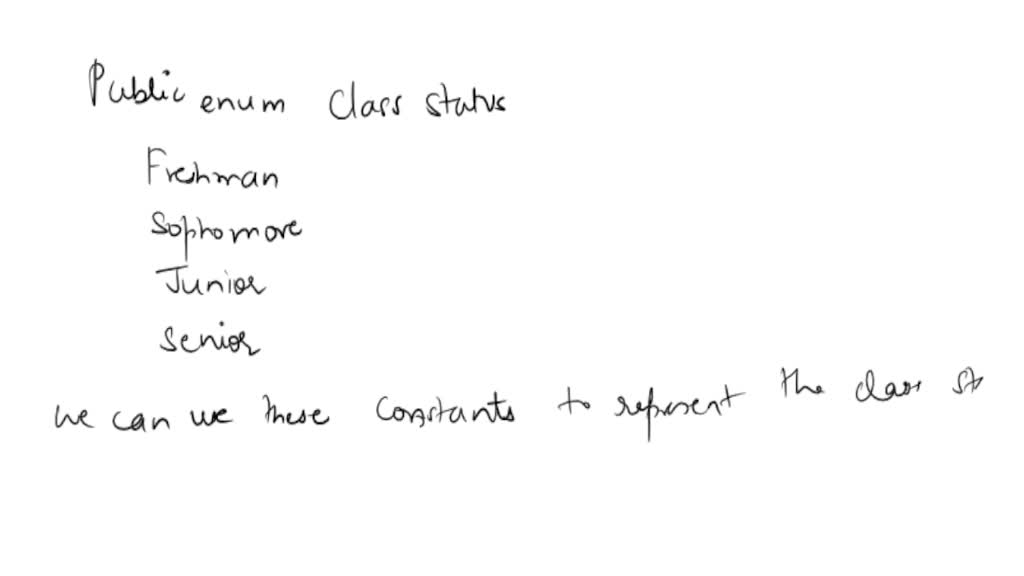 Public enum Class status
Freshman
Sophomore
Junior
Senior
we can use these constants to represent the class st